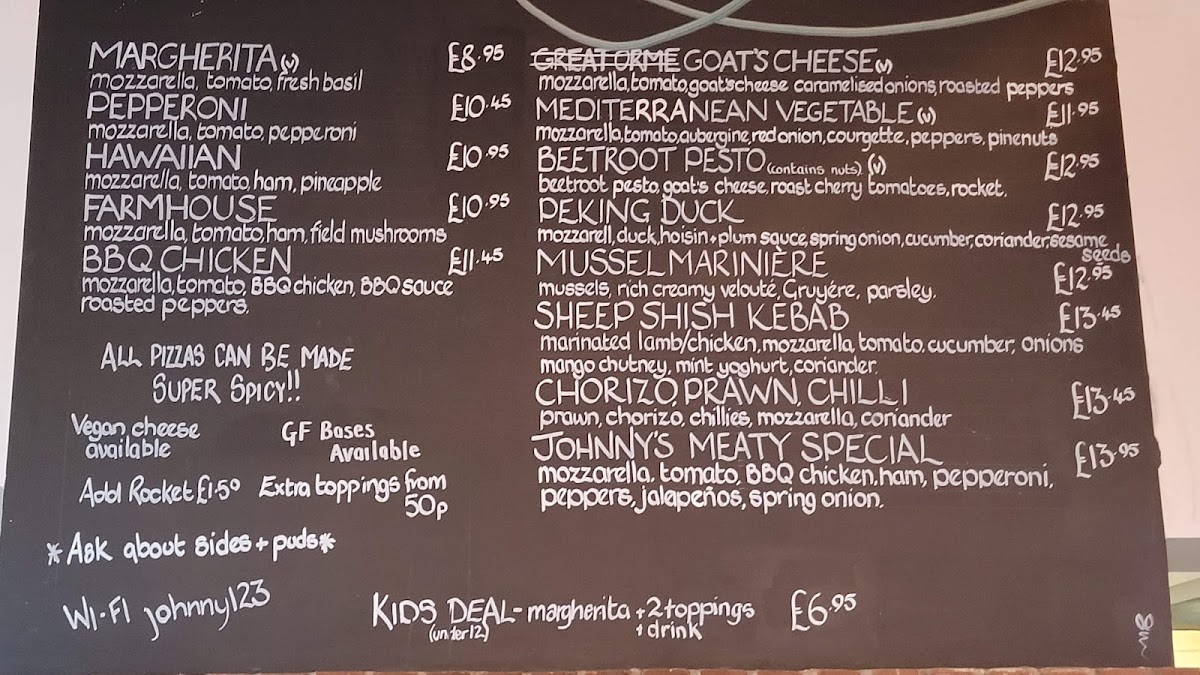 MARGHERITA (v) £8.95
mozzarella, tomato, fresh basil
PEPPERONI £10.45
mozzarella, tomato, pepperoni
HAWAIIAN £10.95
mozzarella, tomato, ham, pineapple
FARMHOUSE £10.95
mozzarella, tomato, ham, field mushrooms
BBQ CHICKEN £11.45
mozzarella, tomato, BBQ chicken, BBQ sauce
roasted peppers.
ALL PIZZAS CAN BE MADE
SUPER SPICY!!
Vegan cheese
available
GF Bases
Available
Add Rocket £1.50
Extra toppings from
50p
*Ask about sides + puds*
WI-FI johnny123
GREAT ORME GOAT'S CHEESE (v) £12.95
mozzarella, tomato, goat's cheese caramelised onions, roasted peppers
MEDITERRANEAN VEGETABLE (v) £11.95
mozzarella, tomato, aubergine, red onion, courgette, peppers, pinenuts
BEETROOT PESTO (contains nuts) (v) £12.95
beetroot pesto, goat's cheese, roast cherry tomatoes, rocket.
PEKING DUCK £12.95
mozzarell, duck, hoisin + plum sauce, spring onion, cucumber, coriander, sesame
seeds
MUSSEL MARINIÈRE £12.95
mussels, rich creamy velouté, Gruyére, parsley.
SHEEP SHISH KEBAB £13.45
marinated lamb/chicken, mozzarella, tomato, cucumber, onions
mango chutney, mint yoghurt, coriander.
CHORIZO, PRAWN, CHILLI £13.45
prawn, chorizo, chillies, mozzarella, coriander
JOHNNY'S MEATY SPECIAL £13.95
mozzarella, tomato, BBQ chicken, ham, pepperoni,
peppers, jalapeños, spring onion.
KIDS DEAL - margherita + 2 toppings £6.95
(under 12) + drink